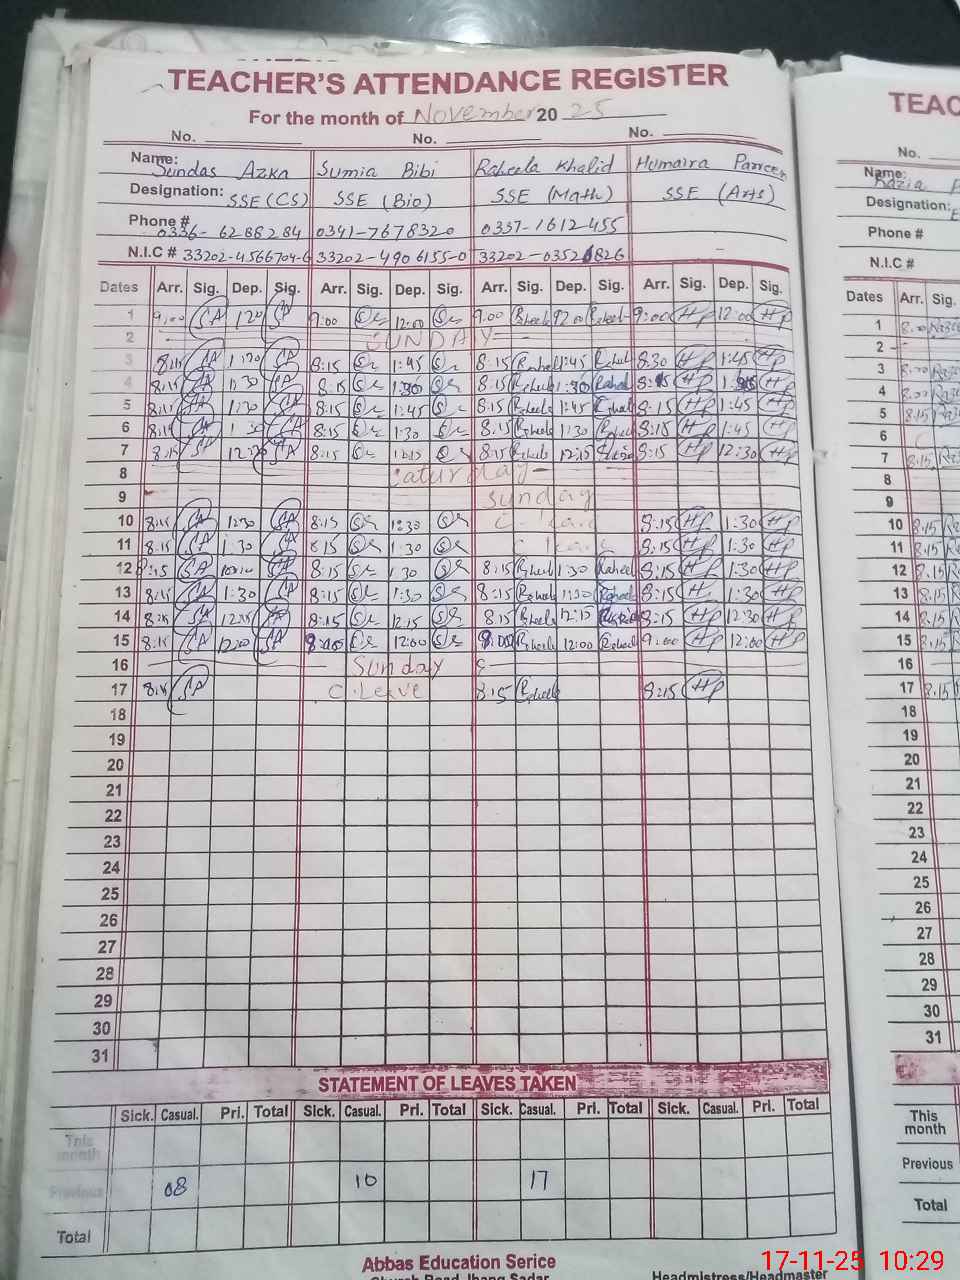 TEACHER'S ATTENDANCE REGISTER
For the month of November 20 25
No. No. No.
Name: Sundas Azka Sumia Bibi Raheela Khalid Humaira Parveen
Designation: SSE (CS) SSE (Bio) SSE (Math) SSE (Arts)
Phone # 0336-6288284 0341-7678320 0337-1612455
N.I.C # 33202-4566704-6 33202-4906155-0 33202-0352 826
Dates Arr. Sig. Dep. Sig. Arr. Sig. Dep. Sig. Arr. Sig. Dep. Sig. Arr. Sig. Dep. Sig.
1 9:00 SA SA 9:00 12:00 9:00 Raheela 9:00 HP 12:00 HP
2 SUNDAY
3 8:15 SA 1:30 SA 8:15 1:45 8:15 Raheel 1:45 Raheel 8:30 HP 1:45 HP
4 8:15 SA 1:30 SA 8:15 1:30 8:15 Raheela 1:30 Raheel HP HP
5 8:15 SA 1:30 SA 8:15 1:45 8:15 Raheela 1:45 8:15 HP 1:45 HP
6 8:15 SA 1:30 SA 8:15 1:30 8:15 Raheela 1:30 8:15 HP 1:45 HP
7 8:15 SA 12:30 SA 8:15 12:15 8:15 Raheela 12:15 8:15 HP 12:30 HP
8 Saturday
9 Sunday
10 8:15 SA 1:30 SA 8:15 1:30 C. Leave 8:15 HP 1:30 HP
11 8:15 SA 1:30 SA 8:15 1:30 C leave 8:15 HP 1:30 HP
12 8:15 SA SA 8:15 1:30 8:15 Raheela 1:30 Raheela 8:15 HP 1:30 HP
13 8:15 SA 1:30 SA 8:15 1:30 8:15 Raheela 1:30 Raheela 8:15 H 1:30 HP
14 8:15 SA 12:15 SA 8:15 12:15 8:15 Raheela 12:15 8:15 HP 12:30 HP
15 8:15 SA 12:00 SA 12:00 9:00 Raheela 12:00 Raheel 9:00 HP 12:00 HP
16 Sunday
17 8:15 SA C. Leave 8:15 Raheela 8:15 HP
18
19
20
21
22
23
24
25
26
27
28
29
30
31
STATEMENT OF LEAVES TAKEN
Sick. Casual. Pri. Total Sick. Casual. Pri. Total Sick. Casual. Pri. Total Sick. Casual. Pri. Total
This month
Previous 08 10 17
Total
Abbas Education Serice
Church Road Jhang Sadar
Headmistress/Headmaster
TEAC
No.
Name: Razia
Designation:
Phone #
N.I.C #
Dates Arr. Sig.
1 8:00
2
3 8:00
4 8:00
5 8:15
6
7 8:15
8
9
10 8:15
11 8:15
12 8:15
13 8:15
14 8:15
15 8:15
16
17 8:15
18
19
20
21
22
23
24
25
26
27
28
29
30
31
This month
Previous
Total
17-11-25 10:29